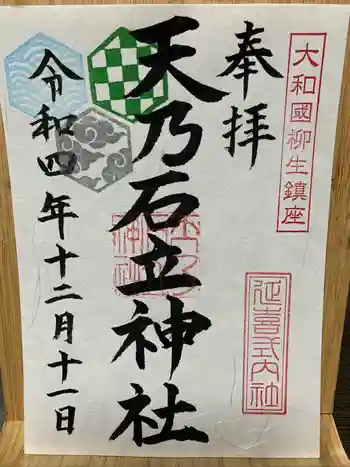 大和國柳生鎮座
奉拝
延喜式内社
天乃石立神社
令和四年十二月十一日